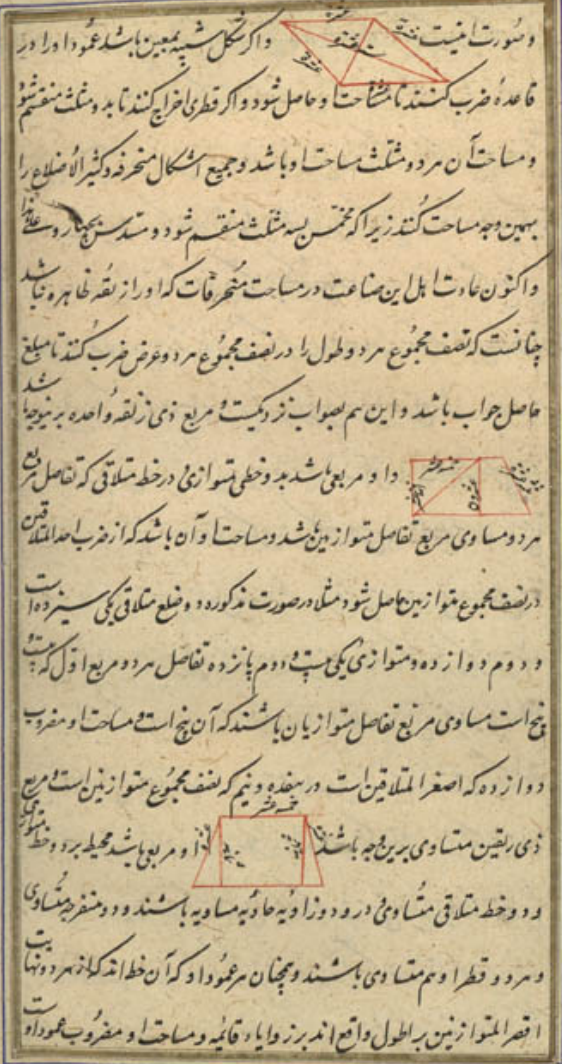 و صورت اینست و اگر شکل شبیه بمعین باشد عمود او را در
قاعده ضرب کنند تا مساحت او حاصل شود و اگر قطری اخراج کنند تا بدو مثلث منقسم شود
و مساحت آن هر دو مثلث مساحت او باشد و جمیع اشکال منحرفه و کثیر الاضلاع را
بهمین وجه مساحت کنند زیرا که مخمس بسه مثلث منقسم شود و مسدس بچهار و علی هذا
و اکنون عادت اهل این صناعت در مساحت منحرفات که او را زنقه ظاهره نباشد
چنانست که نصف مجموع هر دو طول را در نصف مجموع هر دو عرض ضرب کنند تا مبلغ
حاصل جواب باشد و این هم بصواب نزدیکست و مربع ذی زنقه واحده برینوجه باشد
و او مربعی باشد بدو خطی متوازی و در خط متلاقی که تفاصل مربع
هر دو مساوی مربع تفاصل متوازیین باشد و مساحت او آن باشد که از ضرب احد المتلاقین
در نصف مجموع متوازیین حاصل شود مثلا در صورت مذکوره دو ضلع متلاقی یکی سیزده است
و دوم دوازده و متوازی یکی بیست و دوم پانزده تفاصل هر دو مربع اول که بیست و
پنج است مساوی مربع تفاصل متوازیان باشند که آن پنج است و مساحت او مضروب
دوازده که اصغر المتلاقین است در هفده و نیم که نصف مجموع متوازیین است و مربع
ذی زنقتین متساوی برین وجه باشد و او مربعی باشد محیط بر دو خط متوازی
و دو خط متلاقی متساوی و در دو زاویه حاده مساویه باشند و دو منفرجه متساوی
و هر دو قطر او هم متساوی باشند و همچنان هر عمود او که آن خط اند که از هر دو نهایت
اقصر المتوازیین بر اطول واقع اند بر زوایاء قائمه و مساحت او مضروب عمود اوست